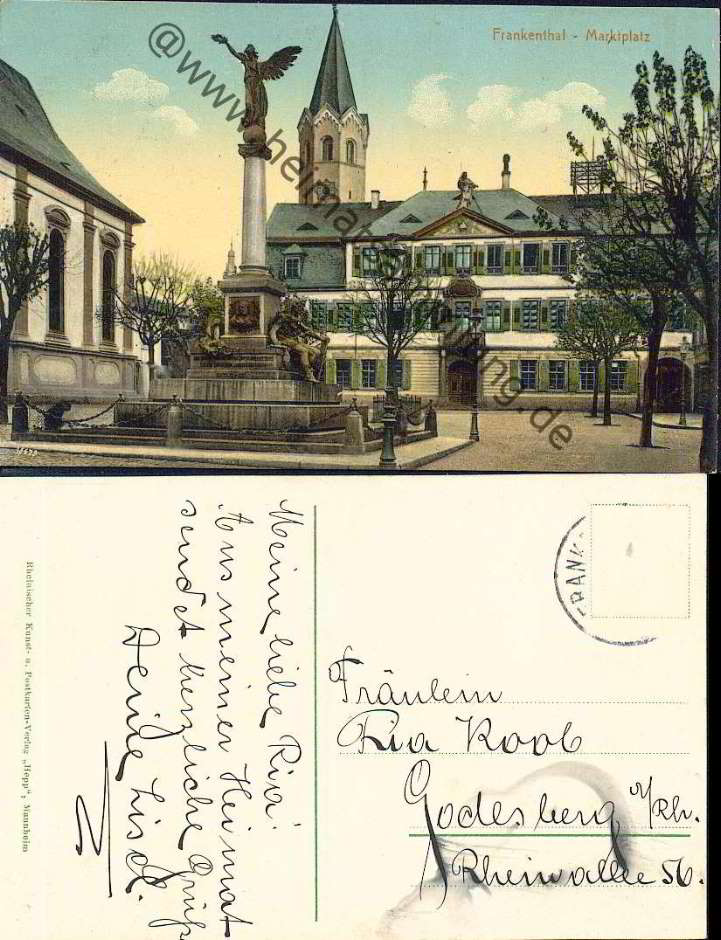 Frankenthal - Marktplatz
@www.heimatsammlung.de
Meine liebe Ria!
Aus meiner Heimat
sendet herzliche Grüße
Deine Lisel.
Rheinischer Kunst- u. Postkarten-Verlag „Hepp“, Mannheim
FRANK
Fräulein
Ria Koob
Godesberg a/Rh.
Rheinallee 56.